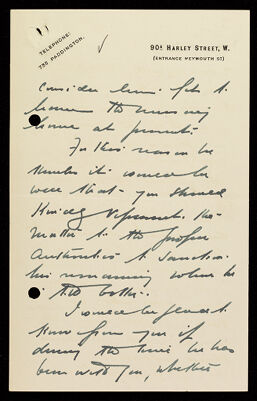 TELEPHONE:
736 PADDINGTON.
90A HARLEY STREET, W.
(ENTRANCE WEYMOUTH ST)
Consider him fit to
leave the nursing
home at present.
For this reason he
thinks it would be
well that you should
Kindly represent the
matter to the proper
Authorities to sanction
his remaining where he
is
I would be glad to
Know from you if
during the time he has
been with you, whether